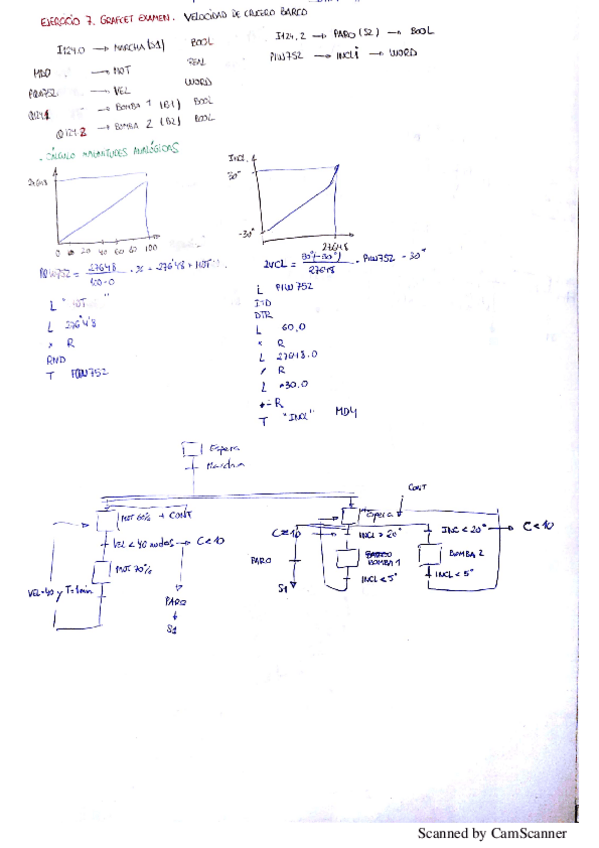 EJERCICIO 7. GRAFCET EXAMEN. VELOCIDAD DE CRUCERO BARCO
I124.0 → MARCHA (S1) BOOL
I124.2 → PARO (S2) → BOOL
MD0 → MOT REAL
PIW752 → INCLI → WORD
PQW752 → VEL WORD
Q124.1 → BOMBA 1 (B1) BOOL
Q124.2 → BOMBA 2 (B2) BOOL
. CÁLCULO MAGNITUDES ANALÓGICAS
27648
0 20 40 60 80 100
INCL.
30°
-30°
27648
PQW752 = 27648 / 100-0 · x = 27648 * MOT
INCL = 30°(-30°) / 27648 · PIW752 - 30°
L "MOT"
L 27648
* R
RND
T PQW752
L PIW752
ITD
DTR
L 60.0
* R
L 27648.0
/ R
L -30.0
+ R
T "INCL" MD4
Espera
Marcha
MOT 60% + CONT
VEL < 40 nudos → C<10
MOT 70%
VEL=40 y T=1min
PARO
S1
CONT
Espera
C≥10
INCL > 20°
INC < 20° → C<10
PARO
BOMBA 1
BOMBA 2
S1
INCL < 5°
INCL < 5°
Scanned by CamScanner